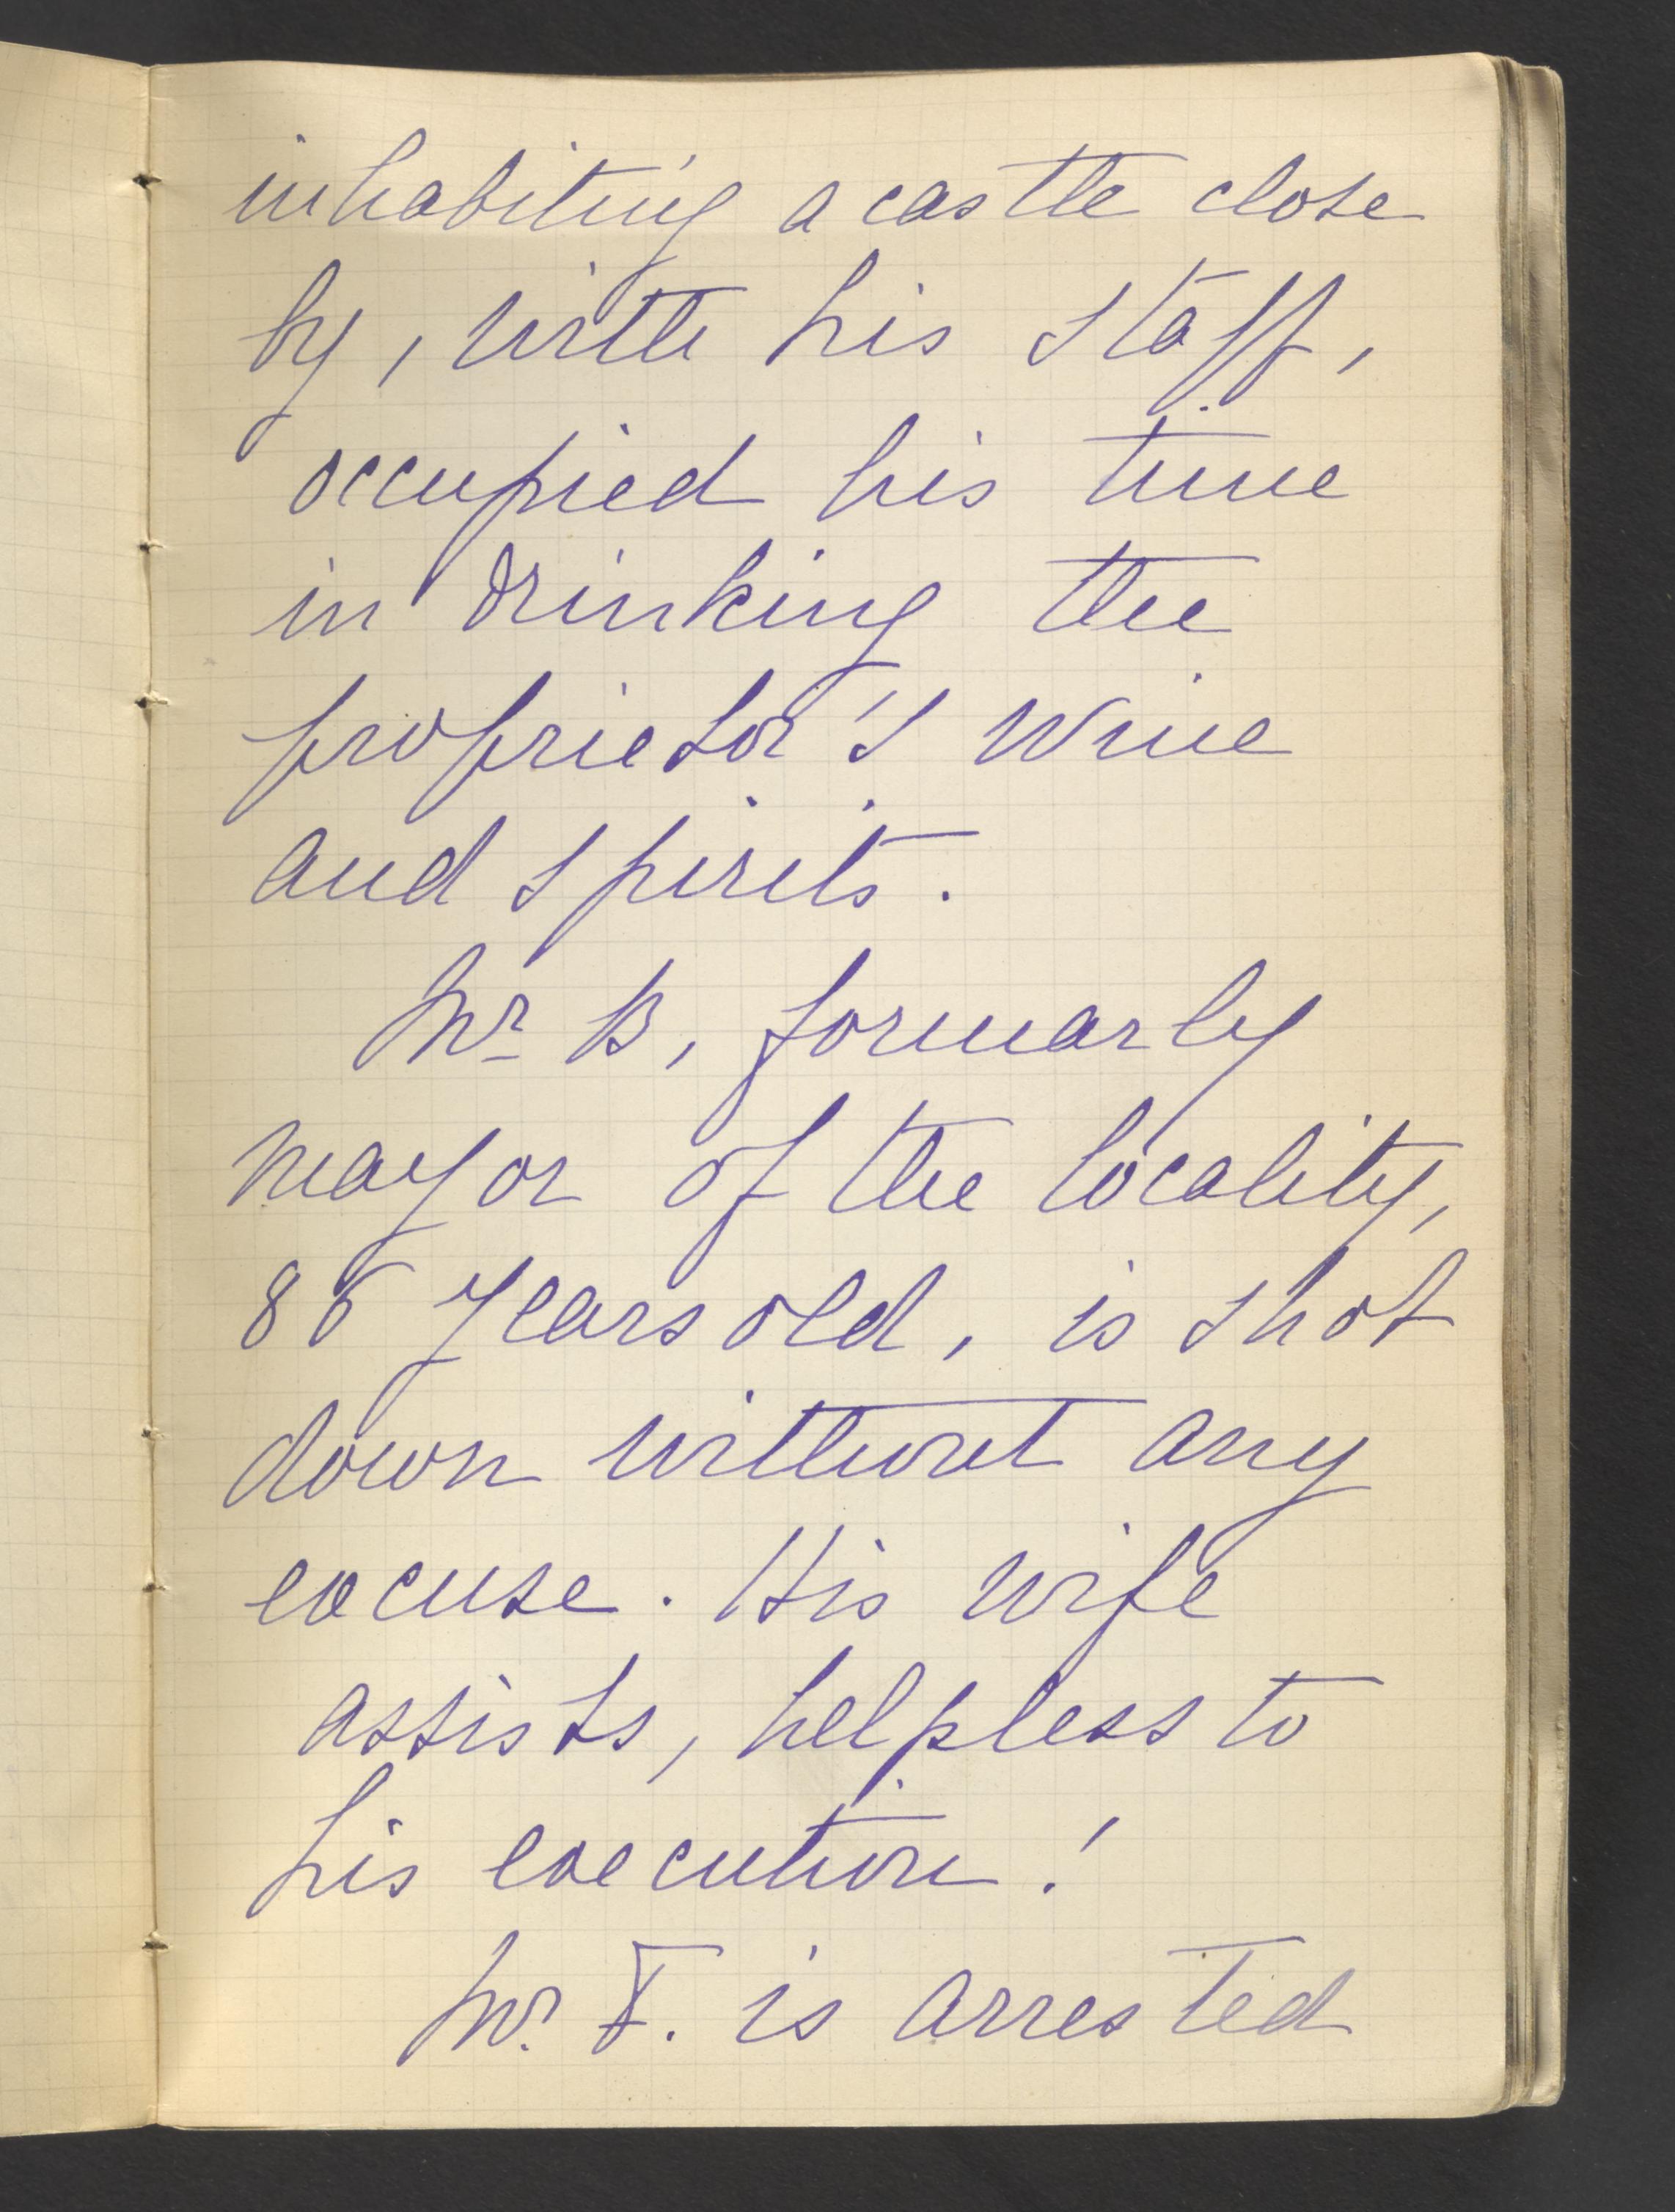 inhabiting a castle close
by, with his staff,
occupied his time
in drinking the
proprietor's wine
and spirits.
Mr B, formarly
mayor of the locality,
86 years old, is shot
down without any
excuse. His wife
assists, helpless to
his execution!
Mr. F. is arrested